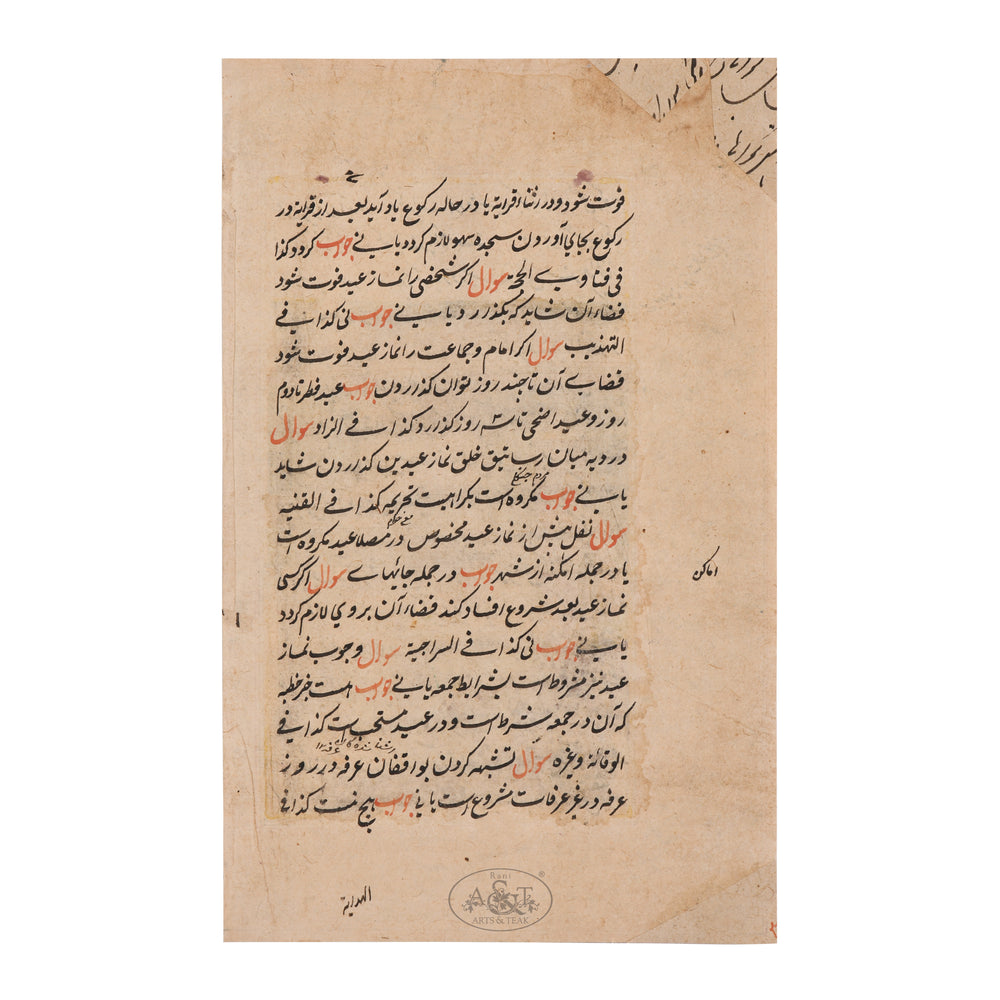 فوت شود و در اثناء قراية یا در حاله رکوع یاد آید بعد از قراية در
رکوع بجای آوردن سجده سهو لازم کردد یا نی جواب کردد کذا
فی فتاوی الحجة سوال اکر شخصی را نماز عید فوت شود
قضاء آن شاید که بکذارد یا نی جواب نی کذا فی
التهذیب سوال اکر امام و جماعت را نماز عید فوت شود
قضای آن تا چند روز توان کذاردن جواب عید فطر تا دوم
روز و عید اضحی تا سه روز کذارد کذا فی الزاد سوال
در دیه میان رساتیق خلق نماز عیدین کذاردن شاید
یا نی جواب مکروه است بکراهیت تحریمه کذا فی القنیه
سوال نفل پیش از نماز عید مخصوص در مصلاء عید مکروه است
یا در جمله امکنه از شهر جواب در جمله جایهای سوال اکر کسی
اماکن
نماز عید بعد شروع افساد کند قضاء آن بر وی لازم کردد
یا نی جواب نی کذا فی السراجیة سوال وجوب نماز
عید نیز مشروط است بشرایط جمعه یا نی جواب است جز خطبه
که آن در جمعه شرط است و در عید مستحب است کذا فی
الوقایة و غیره سوال تشبه کردن بواقفان عرفه در روز
عرفه در غیر عرفات مشروع است یا نی جواب هیچ نیست کذا فی
الهدایة
Rani
A&T
ARTS & TEAK
®